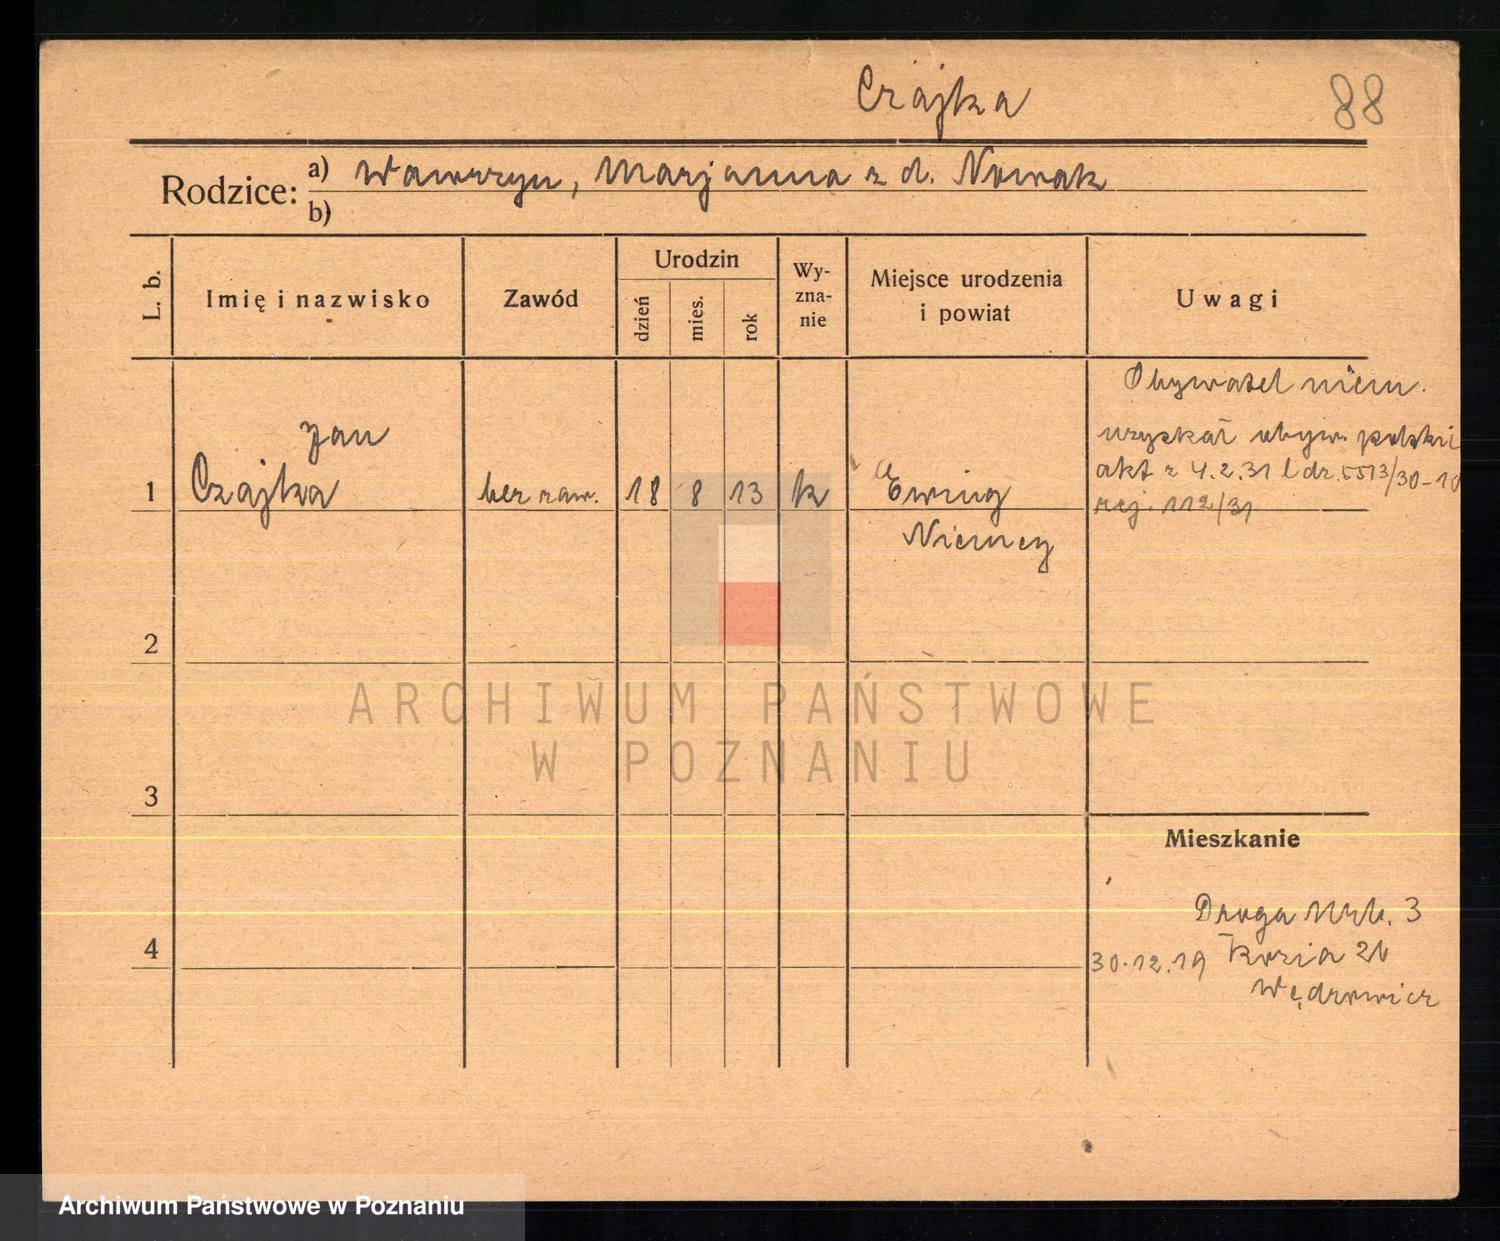 Czajka
88
Rodzice: a) Wawrzyn, Marjanna z d. Nowak
b)
L. b.
Imię i nazwisko
Zawód
Urodzin
dzień
mies.
rok
Wy-
zna-
nie
Miejsce urodzenia
i powiat
Uwagi
Obywatel niem.
uzyskał obyw. polski
akt z 4.2.31 l dz. 5513/30-10
rej. 112/31
Jan
1 Czajka bez zaw. 18 8 13 k Ewing
Niemcy
2
3
4
ARCHIWUM PAŃSTWOWE
W POZNANIU
Mieszkanie
Droga 3
30.12.19 Kozia 26
Wędrowicz
Archiwum Państwowe w Poznaniu